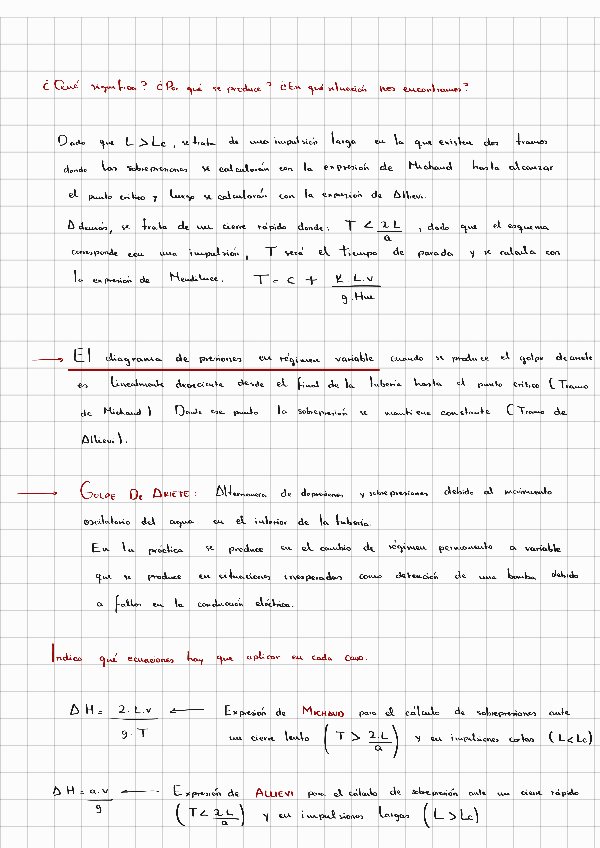 ¿Qué significa? ¿Por qué se produce? ¿En qué situación nos encontramos?
Dado que L > Lc, se trata de una impulsión larga en la que existen dos tramos
donde las sobrepresiones se calcularán con la expresión de Michaud hasta alcanzar
el punto crítico y luego se calcularán con la expresión de Allievi.
Además, se trata de un cierre rápido donde: T < 2L/a , dado que el esquema
corresponde con una impulsión, T será el tiempo de parada y se calcula con
la expresión de Mendiluce. T = C + K L.v / g.Hm
→ El diagrama de presiones en régimen variable cuando se produce el golpe de ariete
es linealmente decreciente desde el final de la tubería hasta el punto crítico (Tramo
de Michaud). Desde ese punto la sobrepresión se mantiene constante (Tramo de
Allievi).
→ GOLPE DE ARIETE: Alternancia de depresiones y sobrepresiones debido al movimiento
oscilatorio del agua en el interior de la tubería.
En la práctica se produce en el cambio de régimen permanente a variable
que se produce en situaciones inesperadas como detención de una bomba debido
a fallos en la conducción eléctrica.
Indica qué ecuaciones hay que aplicar en cada caso.
ΔH = 2.L.v / g.T ← Expresión de MICHAUD para el cálculo de sobrepresiones ante
un cierre lento (T > 2.L/a) y en impulsiones cortas (L<Lc)
ΔH = a.v / g ← Expresión de ALLIEVI para el cálculo de sobrepresión ante un cierre rápido
(T < 2L/a) y en impulsiones largas (L > Lc)